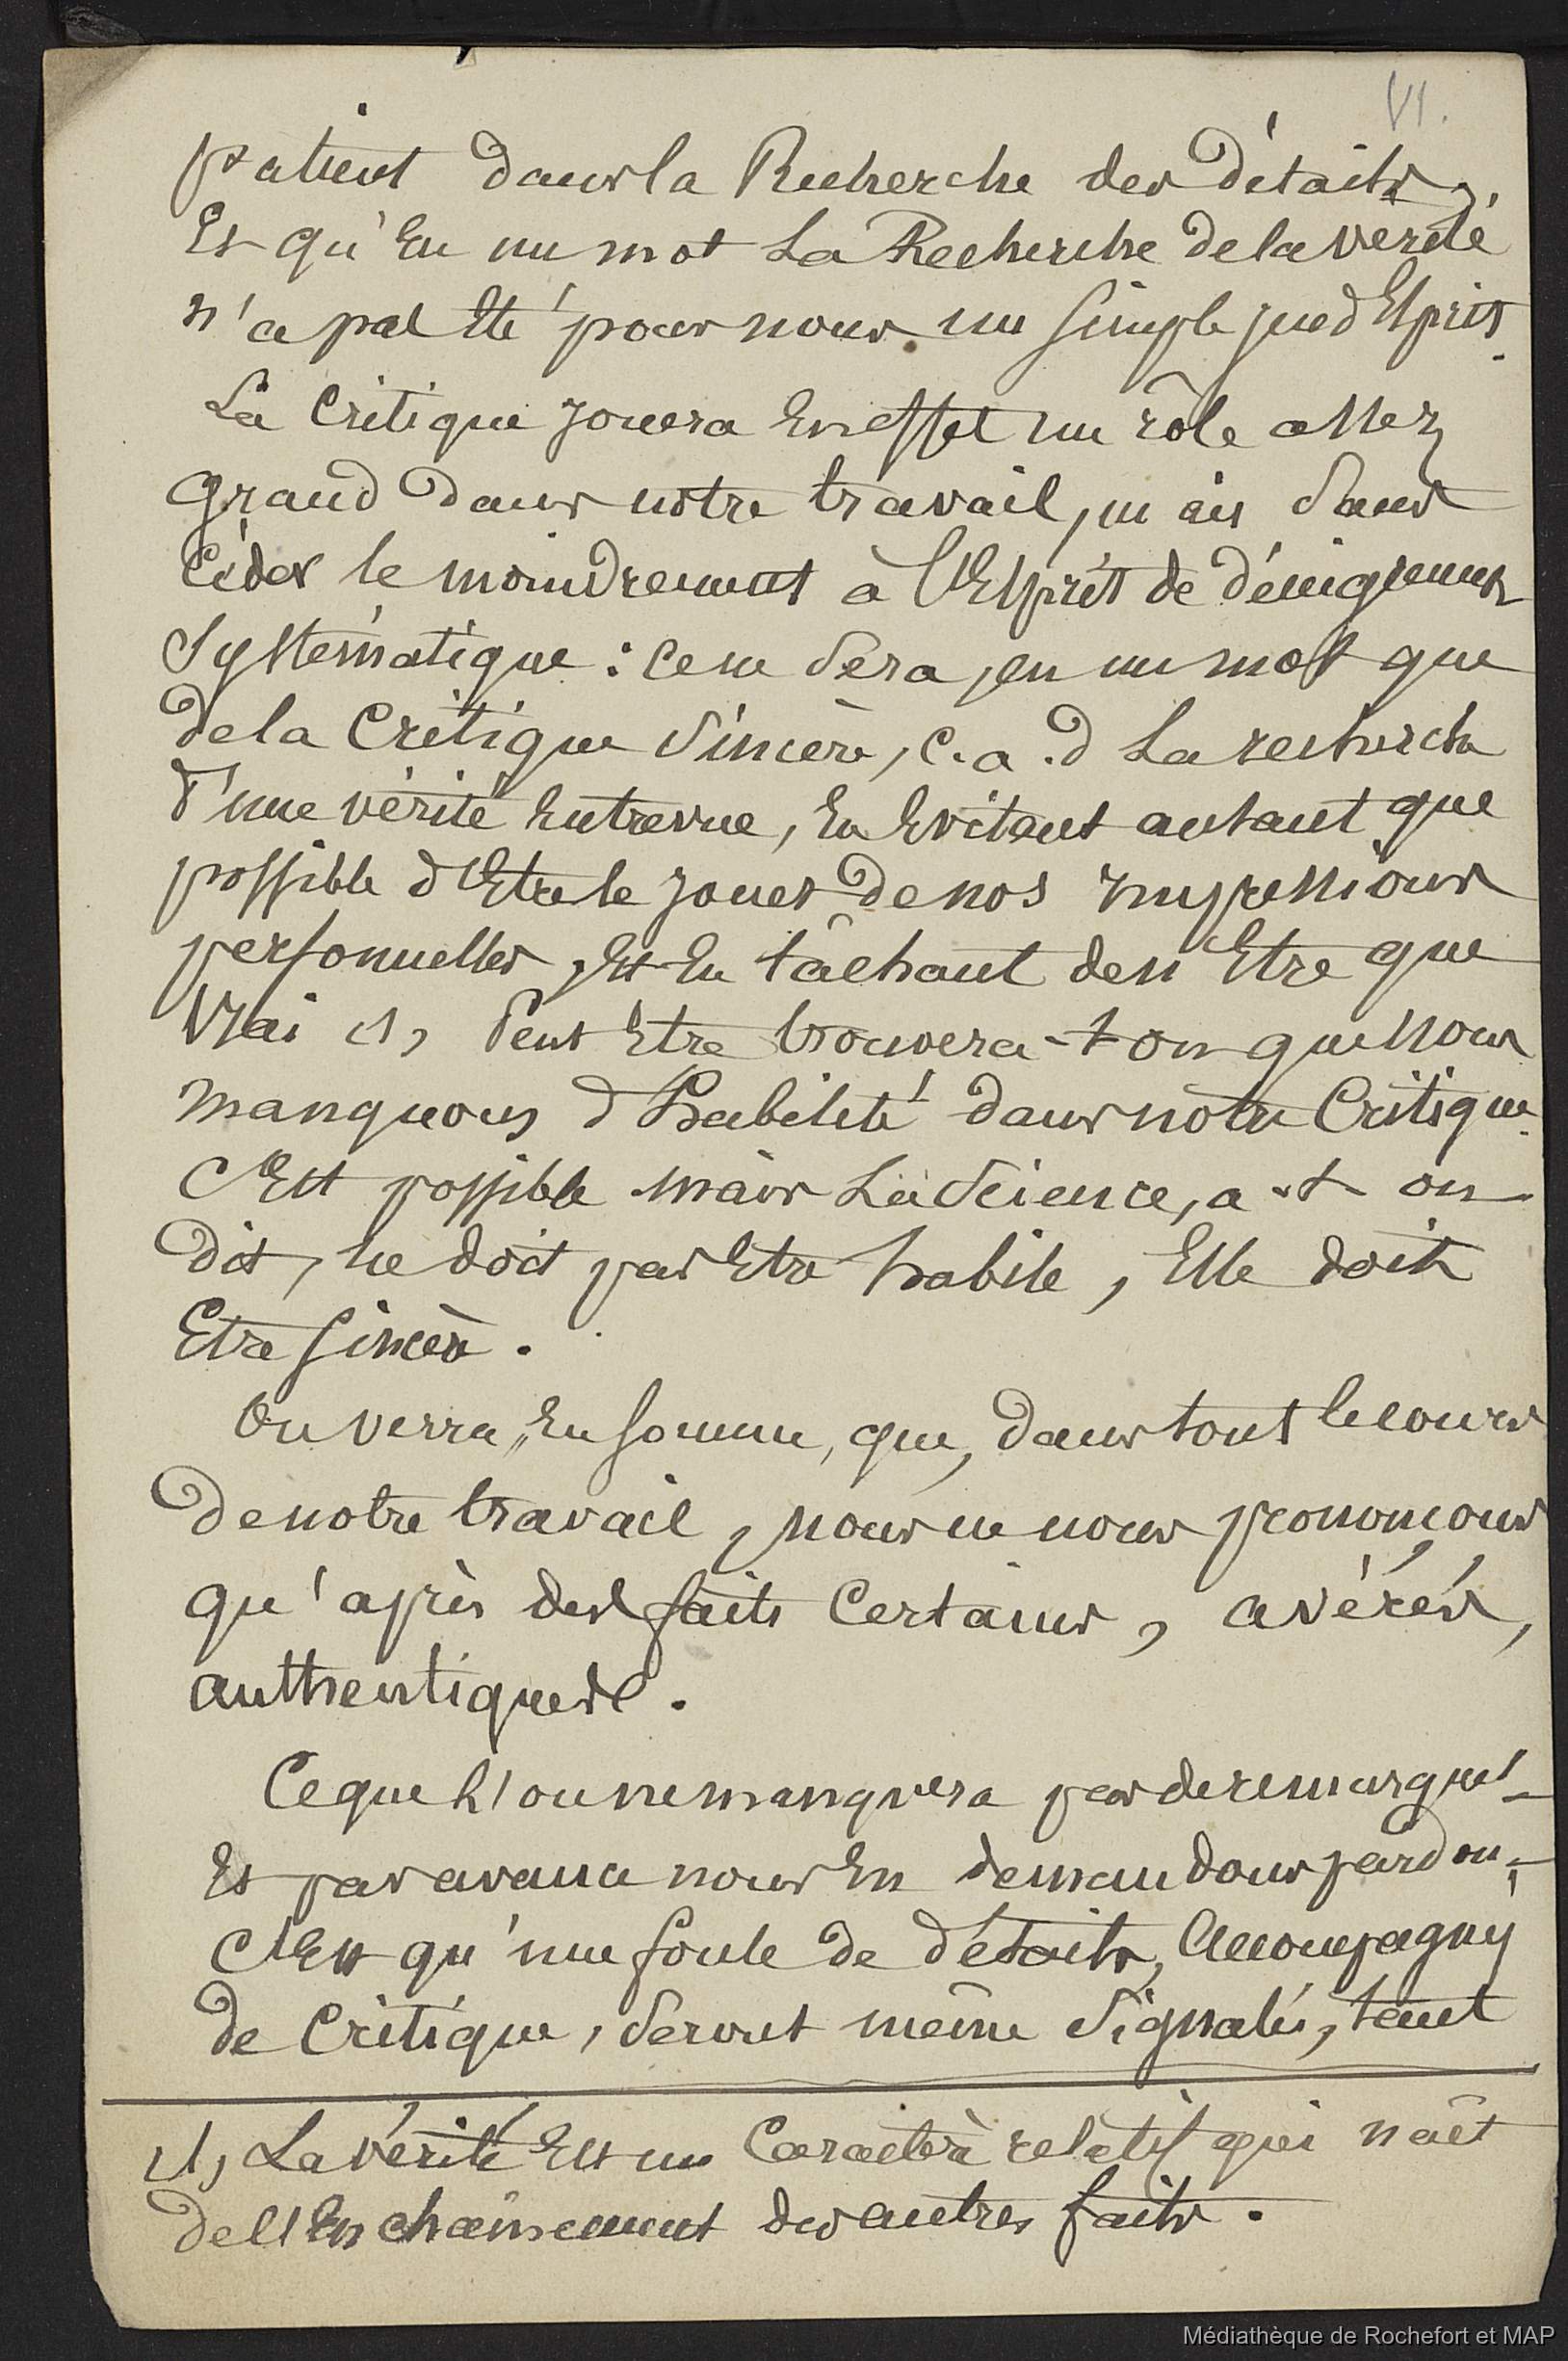 VI.
patient dans la Recherche des Détails,
Et qu'En un mot La Recherche de la vérité
n'a pas Eté pour nous un simple jeu d'Esprit.
La Critique jouera En effet un rôle assez
grand Dans notre travail, mais sans
Céder le moindrement à l'Esprit de dénigrement
Systématique : Ce ne sera, en un mot que
de la Critique sincère, c. a. d La recherche
d'une vérité Entrevue, En Evitant autant que
possible d'Etre le jouet de nos impressions
personnelles, Et En tâchant de n'Etre que
Vrai (1), Peut Etre trouvera-t on que Nous
manquons d'habileté dans notre Critique.
C'Est possible mais La Science, a-t-on
dit, ne doit pas Etre habile, Elle doit
Etre sincère.
On verra, En somme, que, dans tout le cours
de notre travail, nous ne nous prononçons
qu'après des faits Certains, avérés,
authentiques.
Ce que l'on ne manquera pas de remarquer –
Et par avance nous En demandons pardon, –
C'Est qu'une foule de détails, Accompagnés
de Critique, seront même signalés, tant
(1) La vérité Est un Caractère relatif qui naît
de l'Enchaînement des autres faits.
Médiathèque de Rochefort et MAP